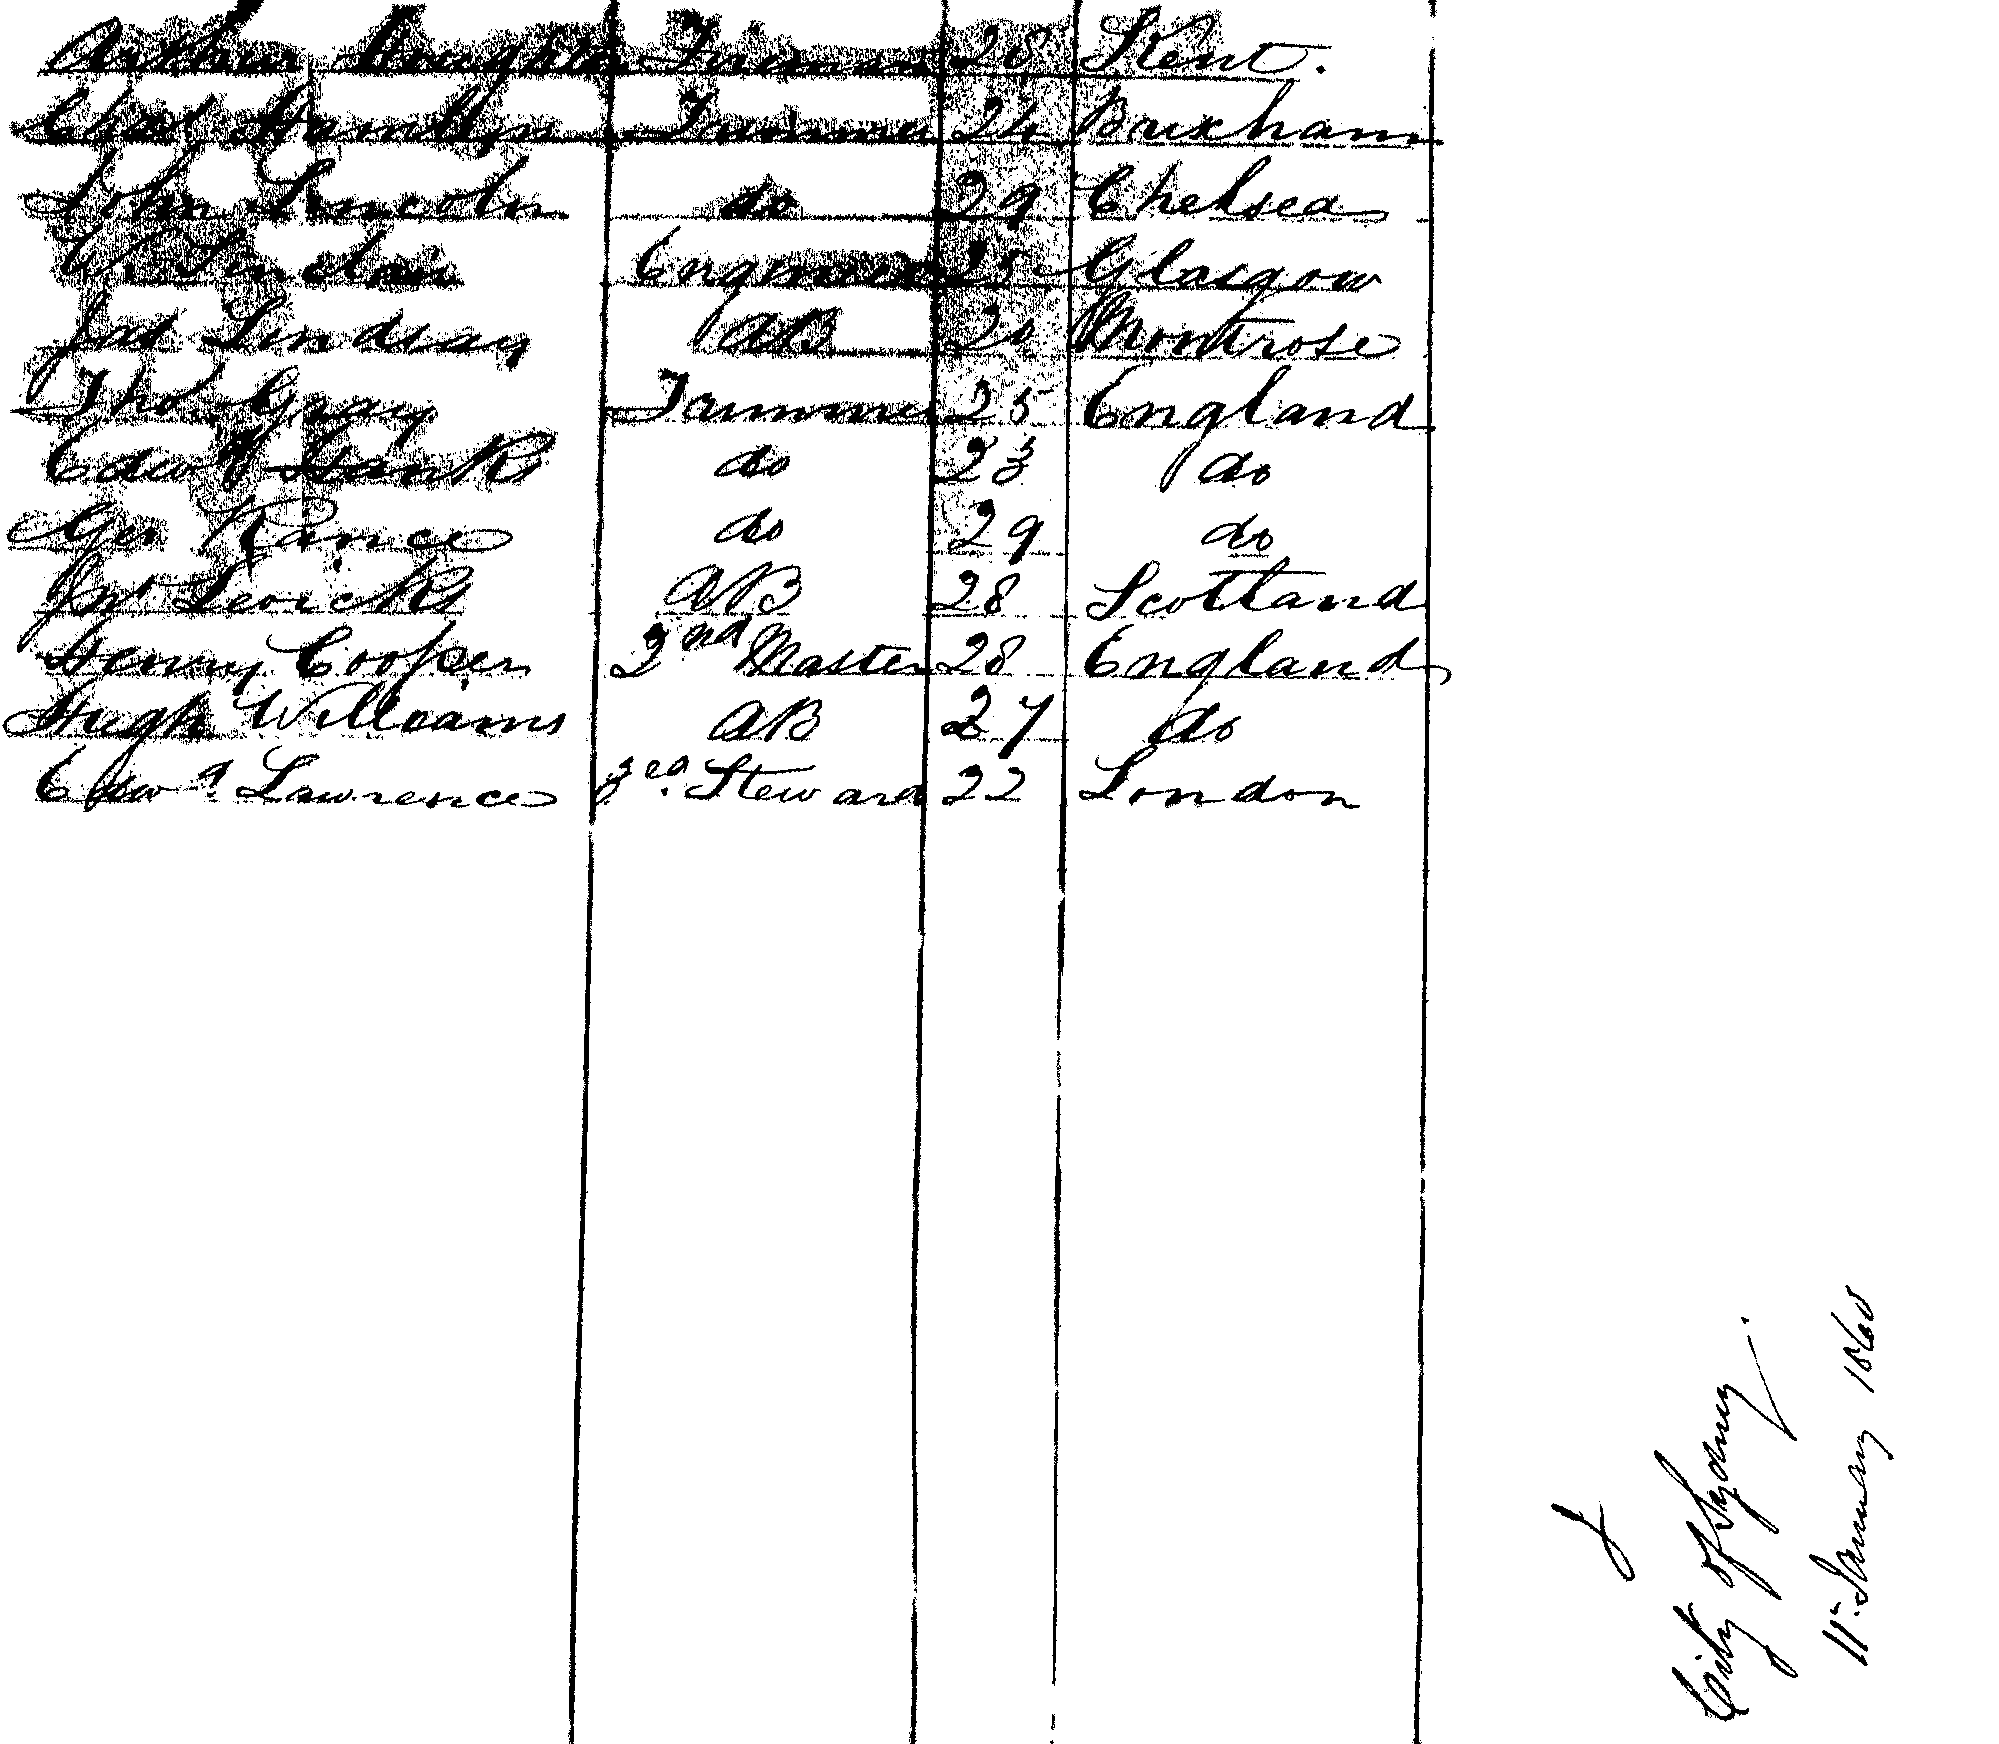 Arthur Doughton Fireman 28 Kent.
Chas Hamblyn Trimmer 24 Brixham
John Lincoln do 29 Chelsea
W. Sinclair Engineer 25 Glasgow
Jas Lindsay AB 20 Montrose
Thos Gray Trimmer 25 England
Edwd Hanks do 23 do
Geo Rance do 29 do
Jno AB 28 Scotland
Henry Cooper 2nd Master 28 England
Hugh Williams AB 27 do
Edwd. Lawrence Steward 22 London
City of Sydney
11 January 1860